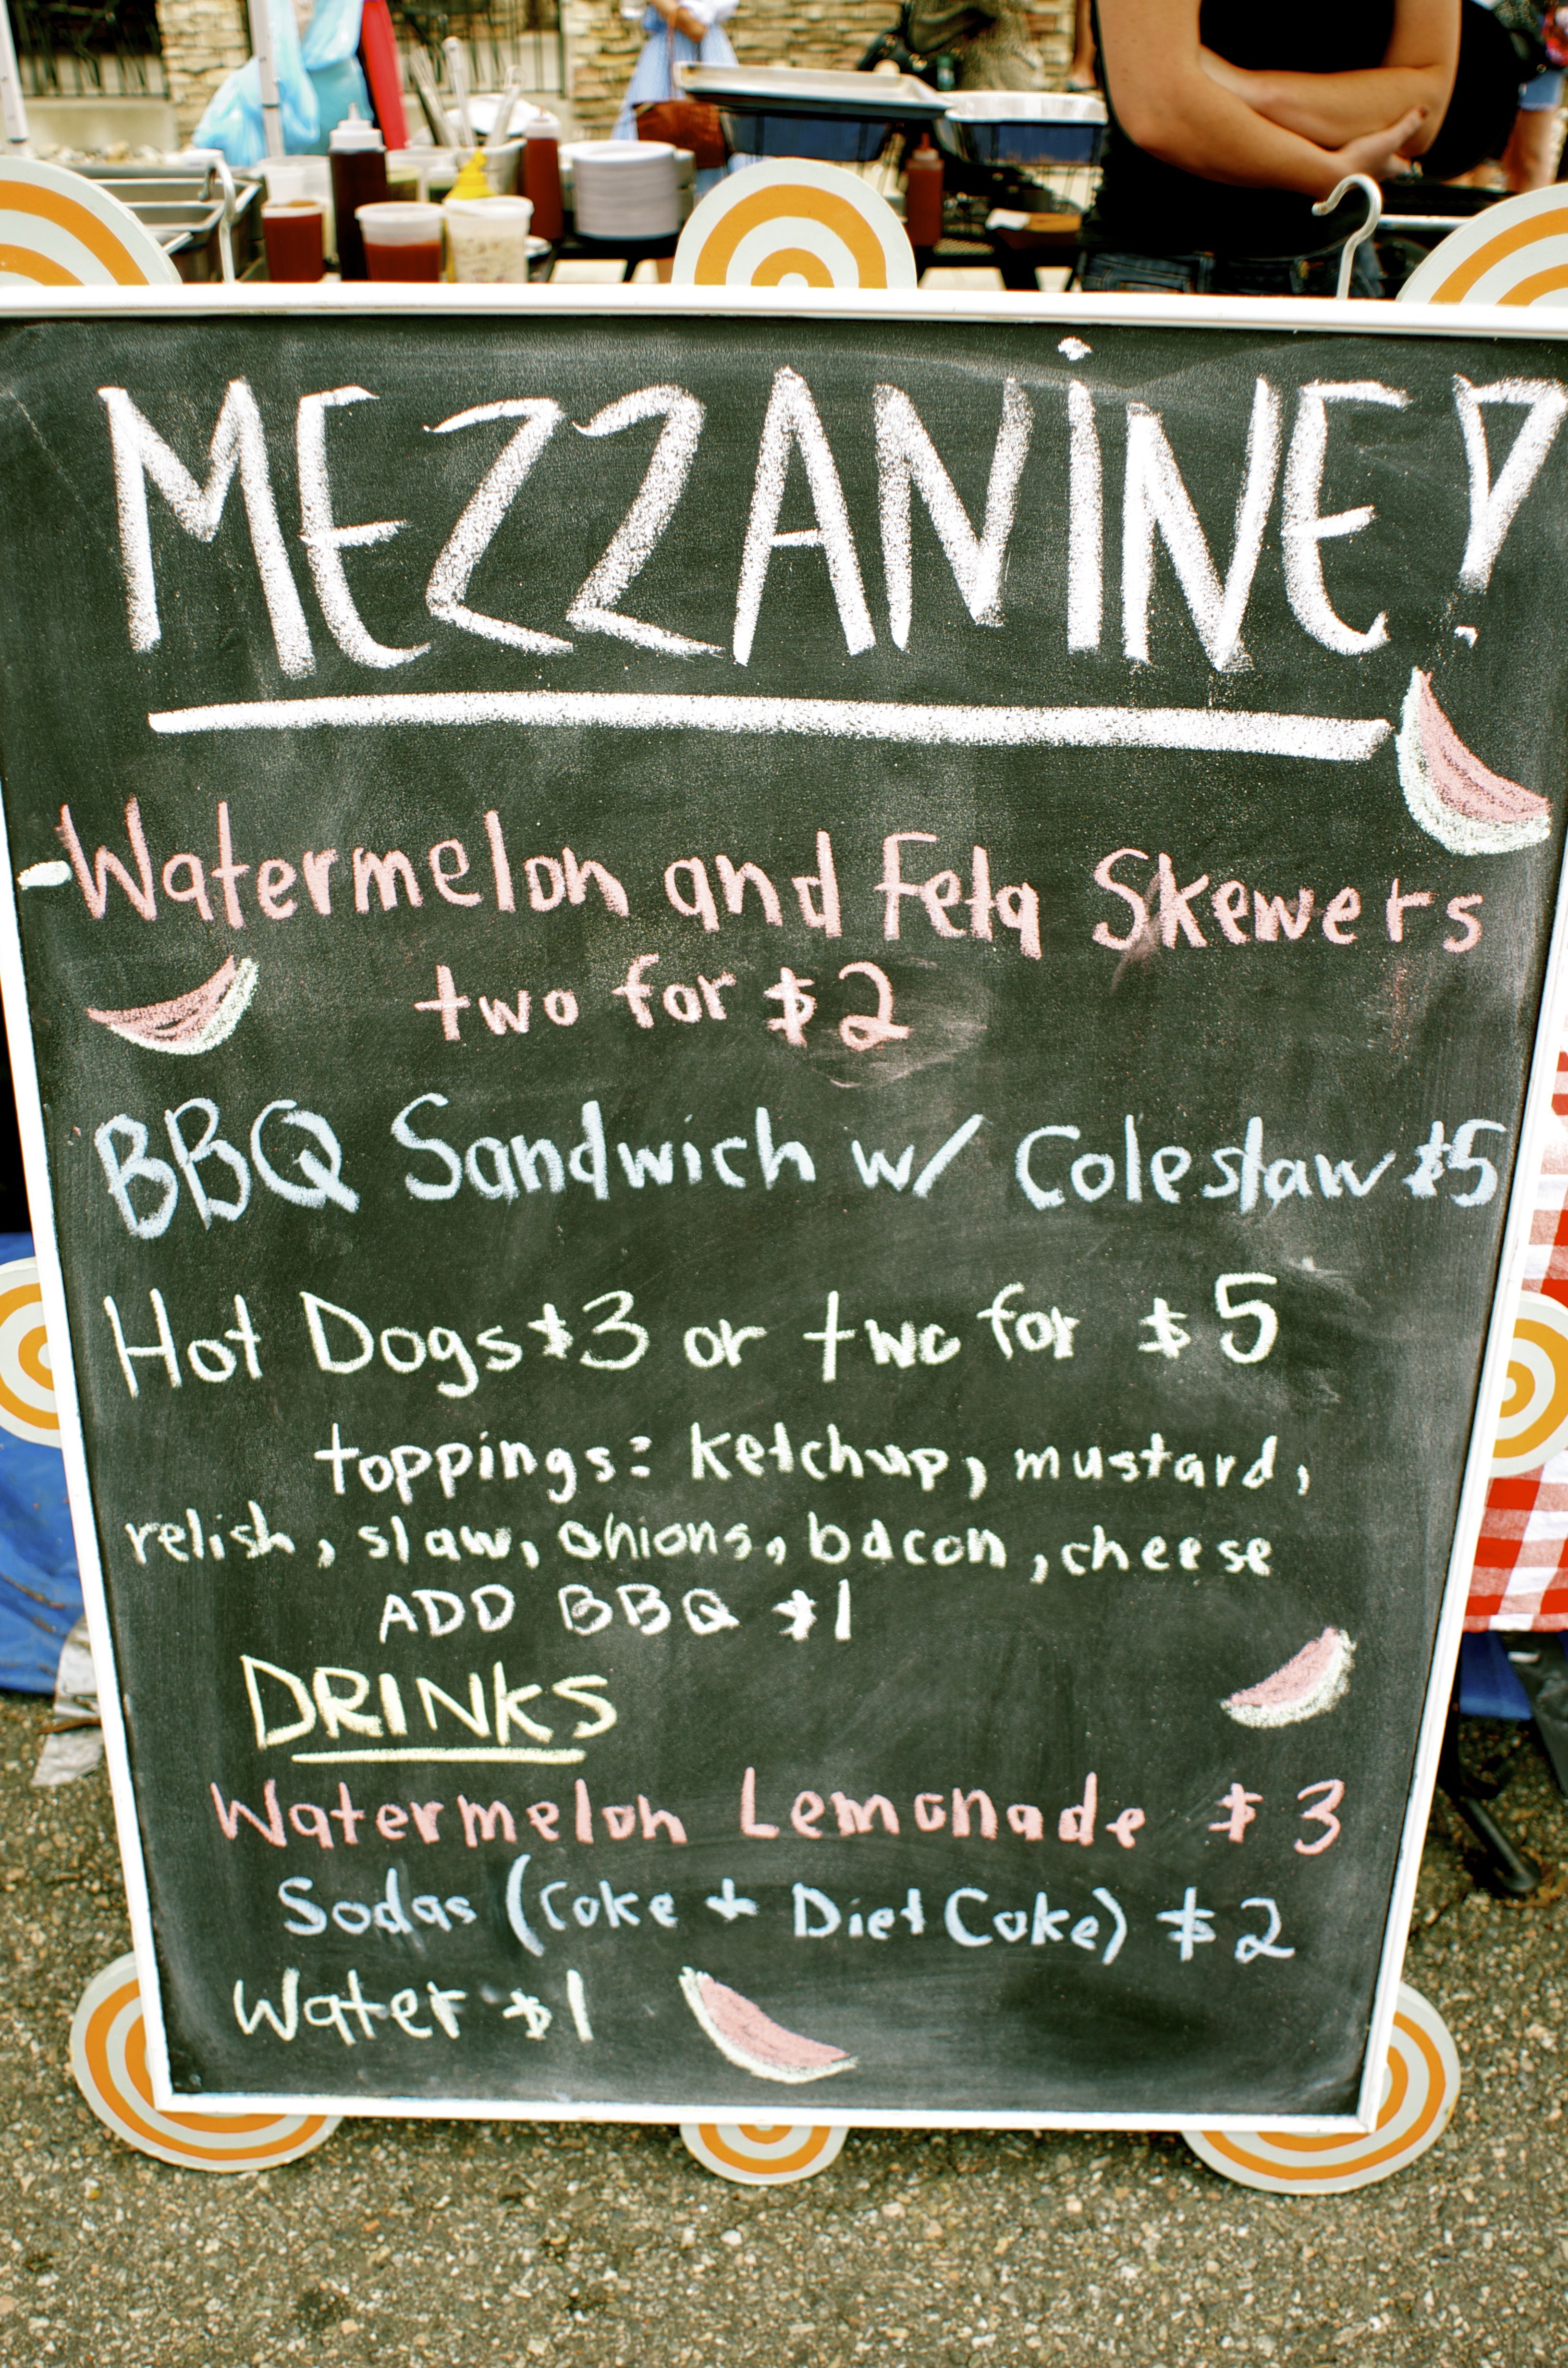 MEZZANiNE!
-Watermelon and Feta Skewers
two for $2
BBQ Sandwich w/ Coleslaw $5
Hot Dogs $3 or two for $5
toppings: ketchup, mustard,
relish, slaw, onions, bacon, cheese
ADD BBQ $1
DRINKS
Watermelon Lemonade $3
Sodas (Coke + Diet Coke) $2
Water $1